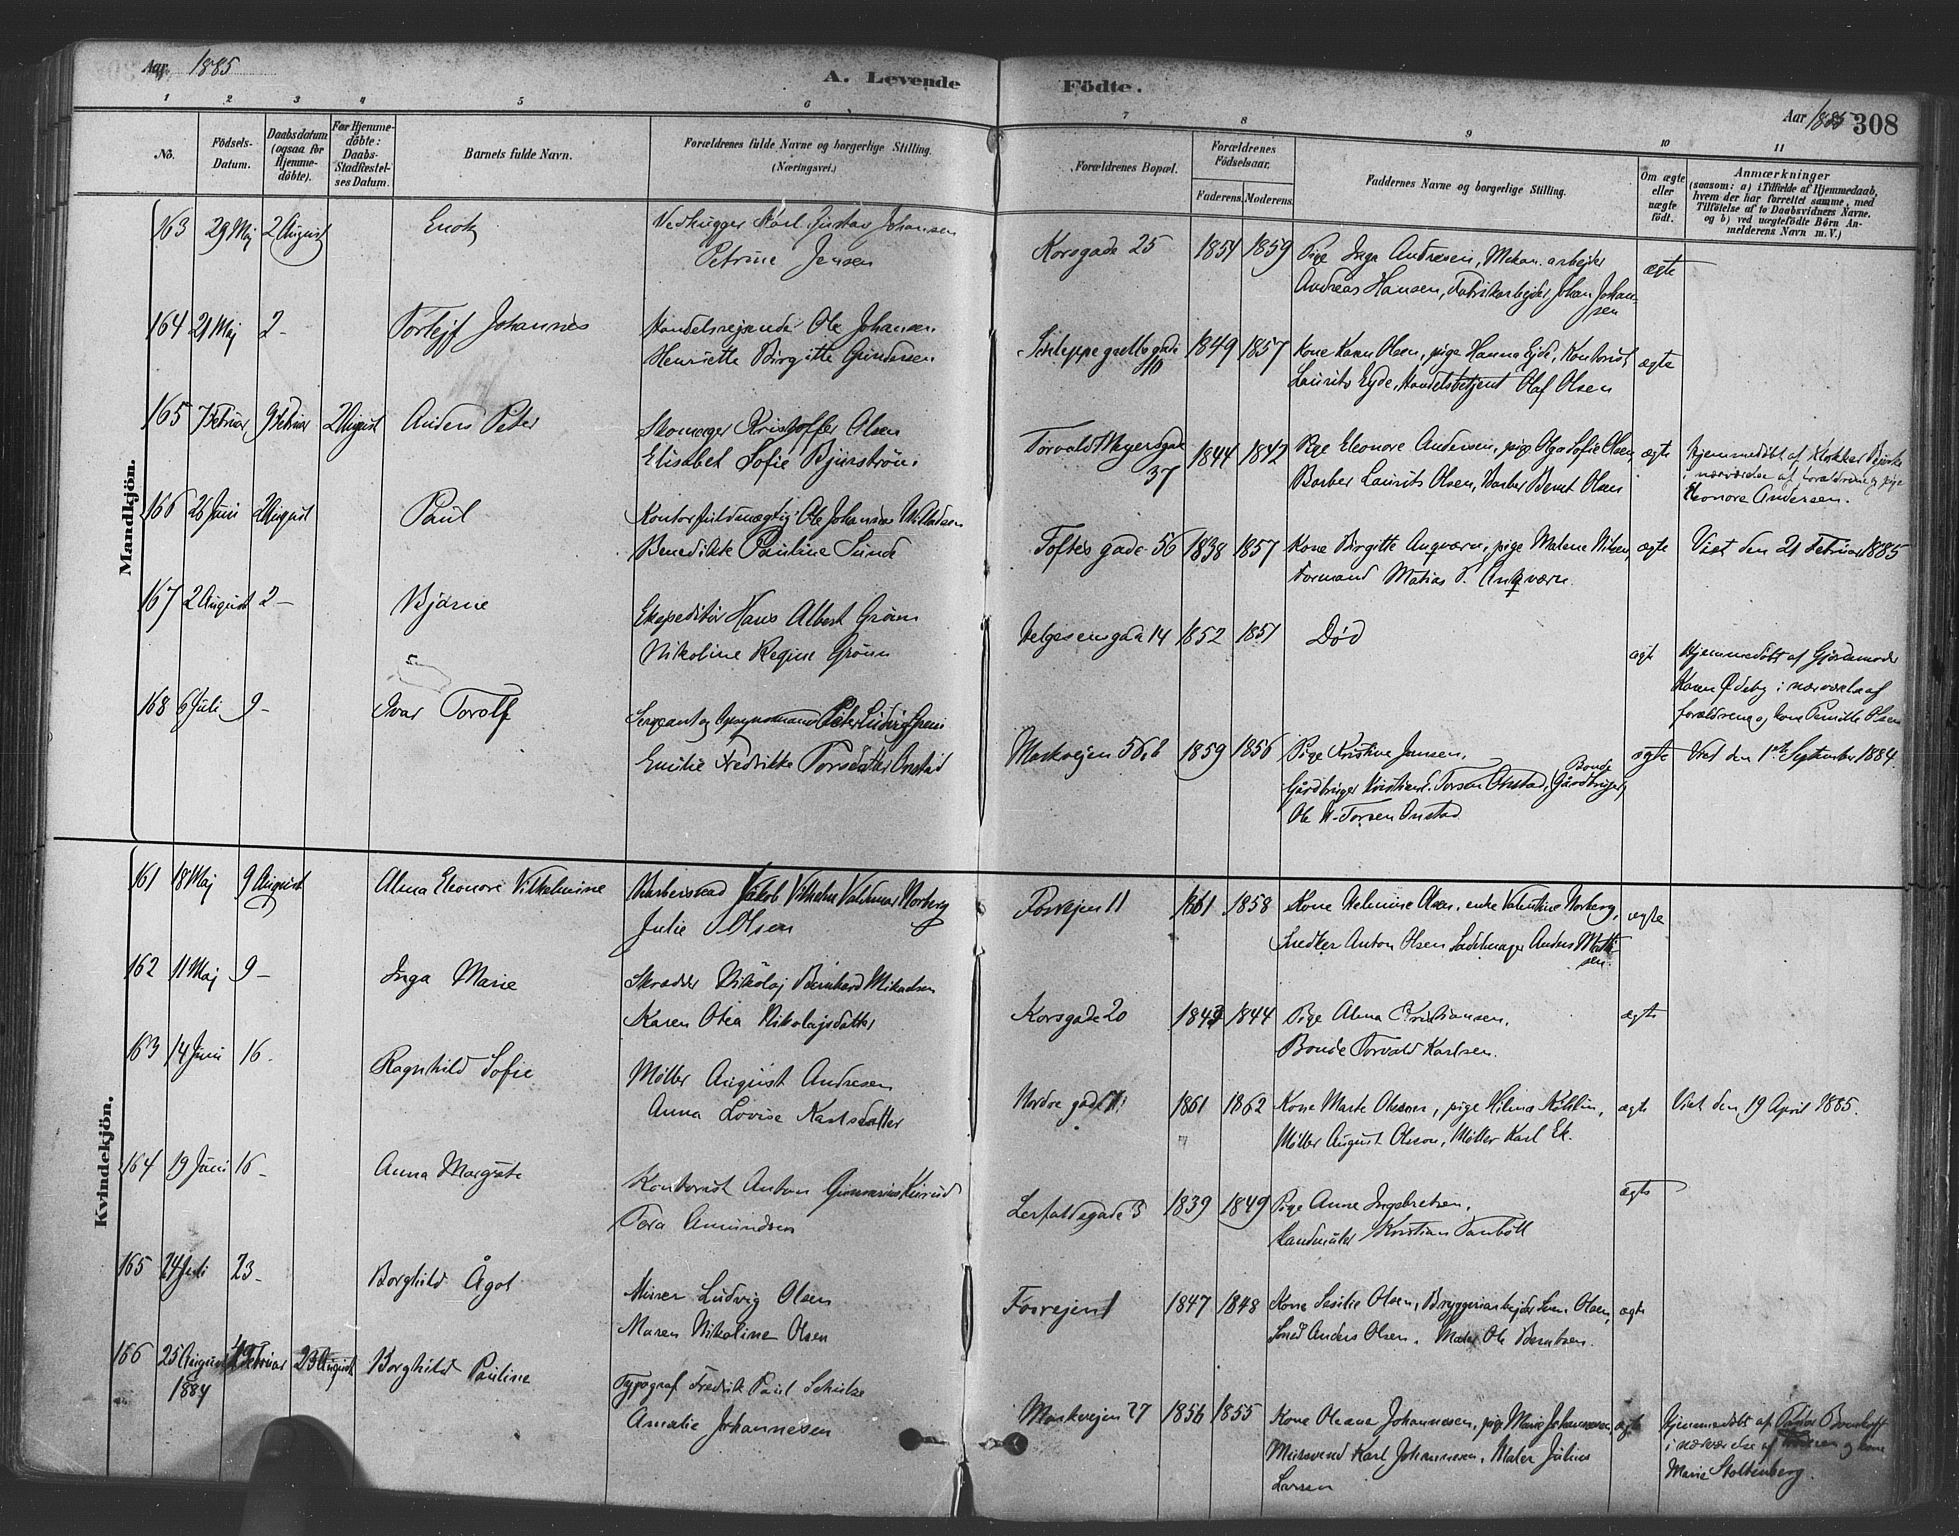 Aar 1885
A. Levende Födte.
Aar 1885 308
1 2 3 4 5 6 7 8 9 10 11
No.
Födsels-Datum.
Daabsdatum (ogsaa for Hjemme-döbte).
For Hjemme-döbte: Daabs-Stadfæstel-ses Datum.
Barnets fulde Navn.
Forældrenes fulde Navne og borgerlige Stilling. (Næringsvei.)
Forældrenes Bopæl.
Forældrenes Födselsaar.
Faderens. Moderens.
Faddernes Navne og borgerlige Stilling.
Om ægte eller uægte födt.
Anmærkninger (saasom: a) i Tilfælde af Hjemmedaab, hvem der har forrettet samme, med Tilföielse af to Daabsvidners Navne. og b) ved uægtefödte Börn An-melderens Navn m. V.)
Mandkjön.
163 29 Maj 2 August Enok
Vedhugger Karl Gustav Johansen
Petrine Jensen
Korsgade 25 1851 1859
Pige Inga Andresen, Mekan. arbejder
Andreas Hansen, Fabrikarbejder Johan Johan-
sen
ægte
164 21 Maj 2 - Torlejf Johannes
Handelsrejsende Ole Johansen
Henriette Birgitte Gundersen
1849 1857
Kone Karen Olsen, pige Hanna Eyde, Kontorist
Laurits Eyde, Handelsbetjent Olaf Olsen
ægte
165 7 Februar 9 Februar 2 August Anders Peter
Skomager Kristoffer Olsen
Elisabet Sofie Bjurström
Torvald Meyersgade
37
1844 1842
Pige Eleonore Andersen, pige Olga Sofie Olsen,
Barber Laurits Olsen, Barber Bernt Olsen
ægte
Hjemmedöbt af Klokker
i nærværelse af forældrene og pige
Eleonore Andersen.
166 26 Juni 2 August Paul
Kontorfuldmægtig Ole Johannes
Benedikte Pauline Sunde
Toftes gade 56 1838 1857
Kone Birgitte Angværn, pige Malene Nilsen,
Formand Matias Angværn.
ægte
Viet den 21 Februar 1885
167 2 August 2 - Bjarne
Ekspeditör Hans Albert Grönn
Nikoline Regine Grönn
Helgesensgade 14 1852 1851
Död
ægte
Hjemmedöbt af Gjordemoder
Karen Ödeby i nærværelse af
forældrene og kone Pernille Olsen
168 6 Juli 9 - Ivar Torolf
Sergeant og Peter Ludvig
Emilie Fredrikke Torsdatter Onstad
Markvejen 56, b 1859 1856
Pige Kristine Jansen,
Gårdbruger Kristian E. Torsen Onstad, Bonde Gårdbruger,
Ole H. Torsen Onstad
ægte
Viet den 1ste September 1884.
Kvindekjön.
161 18 Maj 9 August Alma Eleonore Vilhelmine
Jakob Vilhelm Valdemar Norberg
Julie Olsen
Fosvejen 11 1861 1858
Kone Helmine Olsen, enke Valentine Norberg,
Snedker Anton Olsen Sadelmager Anders
sen.
ægte
162 11 Maj 9 - Inga Marie
Skrædder Nikolaj Bernhard Mikaelsen
Karen Olea Nikolajsdatter
Korsgade 20 1843 1844
Pige Alma Kristiansen,
Bonde Torvald Karlsen.
ægte
163 14 Juni 16 - Ragnhild Sofie
Møller August Andresen
Anna Lovise Karlsdatter
Nordre gade 1861 1862
Kone Marte Olsson, pige Hilma
Møller August Olsson, Møller Karl Ek.
ægte
Viet den 19 April 1885.
164 19 Juni 16 - Anna Margrete
Kontorist Anton
Tora Amundsen
Lerfaldsgade 3 1839 1849
Pige Anne Ingebretsen,
Kristian
ægte
165 24 Juli 23 - Borghild Ågot
Murer Ludvig Olsen
Maren Nikoline Olsen
Fosvejen 1 1847 1848
Kone Sesilie Olsen, Bryggeriarbejder Sven Olsen,
Smed Anders Olsen, Maler Ole Berntsen.
ægte
166 25 August Februar 23 August Borghild Pauline
1884
Typograf Fredrik Paul Schulze
Amalie Johannesen
Markvejen 27 1856 1855
Kone Oleane Johannesen, pige Marie Johannesen
Murersvend Karl Johannesen, Maler Julius
Larsen
ægte
Hjemmedöbt af Pastor
i nærværelse af og kone
Marie Stoltenberg.